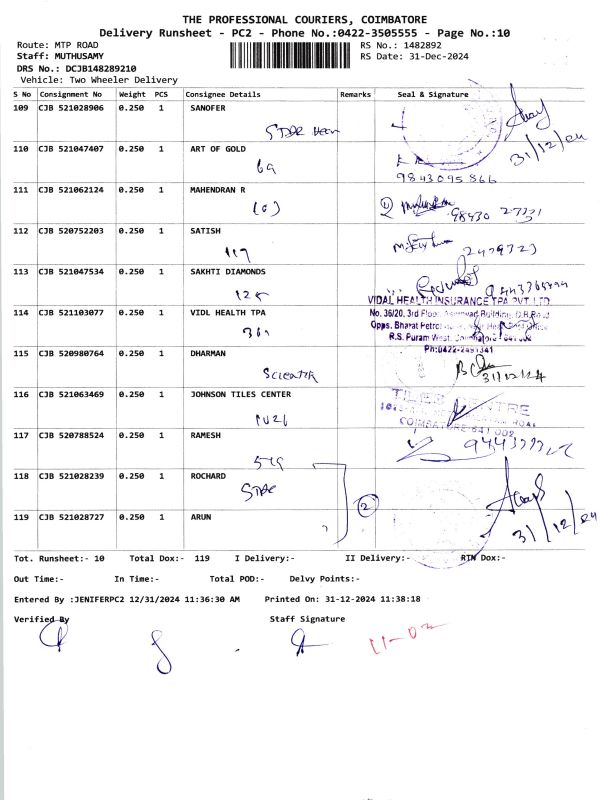 THE PROFESSIONAL COURIERS, COIMBATORE
Delivery Runsheet - PC2 - Phone No.:0422-3505555 - Page No.:10
Route: MTP ROAD RS No.: 1482892
Staff: MUTHUSAMY RS Date: 31-Dec-2024
DRS No.: DCJB148289210
Vehicle: Two Wheeler Delivery
S No Consignment No Weight PCS Consignee Details Remarks Seal & Signature
109 CJB 521028906 0.250 1 SANOFER
31/12/24
110 CJB 521047407 0.250 1 ART OF GOLD
9843095866
111 CJB 521062124 0.250 1 MAHENDRAN R
112 CJB 520752203 0.250 1 SATISH
117
113 CJB 521047534 0.250 1 SAKHTI DIAMONDS
VIDAL HEALTH INSURANCE TPA PVT. LTD
114 CJB 521103077 0.250 1 VIDL HEALTH TPA
No. 36/20, 3rd Floor, Building, D.B.Road
Opps. Bharat Petrol Office
R.S. Puram West, Coimbatore - 641 002
Ph:0422-2491341
115 CJB 520980764 0.250 1 DHARMAN
31/12/24
116 CJB 521063469 0.250 1 JOHNSON TILES CENTER
TILES CENTRE
COIMBATORE-641 002
117 CJB 520788524 0.250 1 RAMESH
118 CJB 521028239 0.250 1 ROCHARD
2
119 CJB 521028727 0.250 1 ARUN
31/12/24
Tot. Runsheet:- 10 Total Dox:- 119 I Delivery:- II Delivery:- RTN Dox:-
Out Time:- In Time:- Total POD:- Delvy Points:-
Entered By :JENIFERPC2 12/31/2024 11:36:30 AM Printed On: 31-12-2024 11:38:18
Verified By Staff Signature